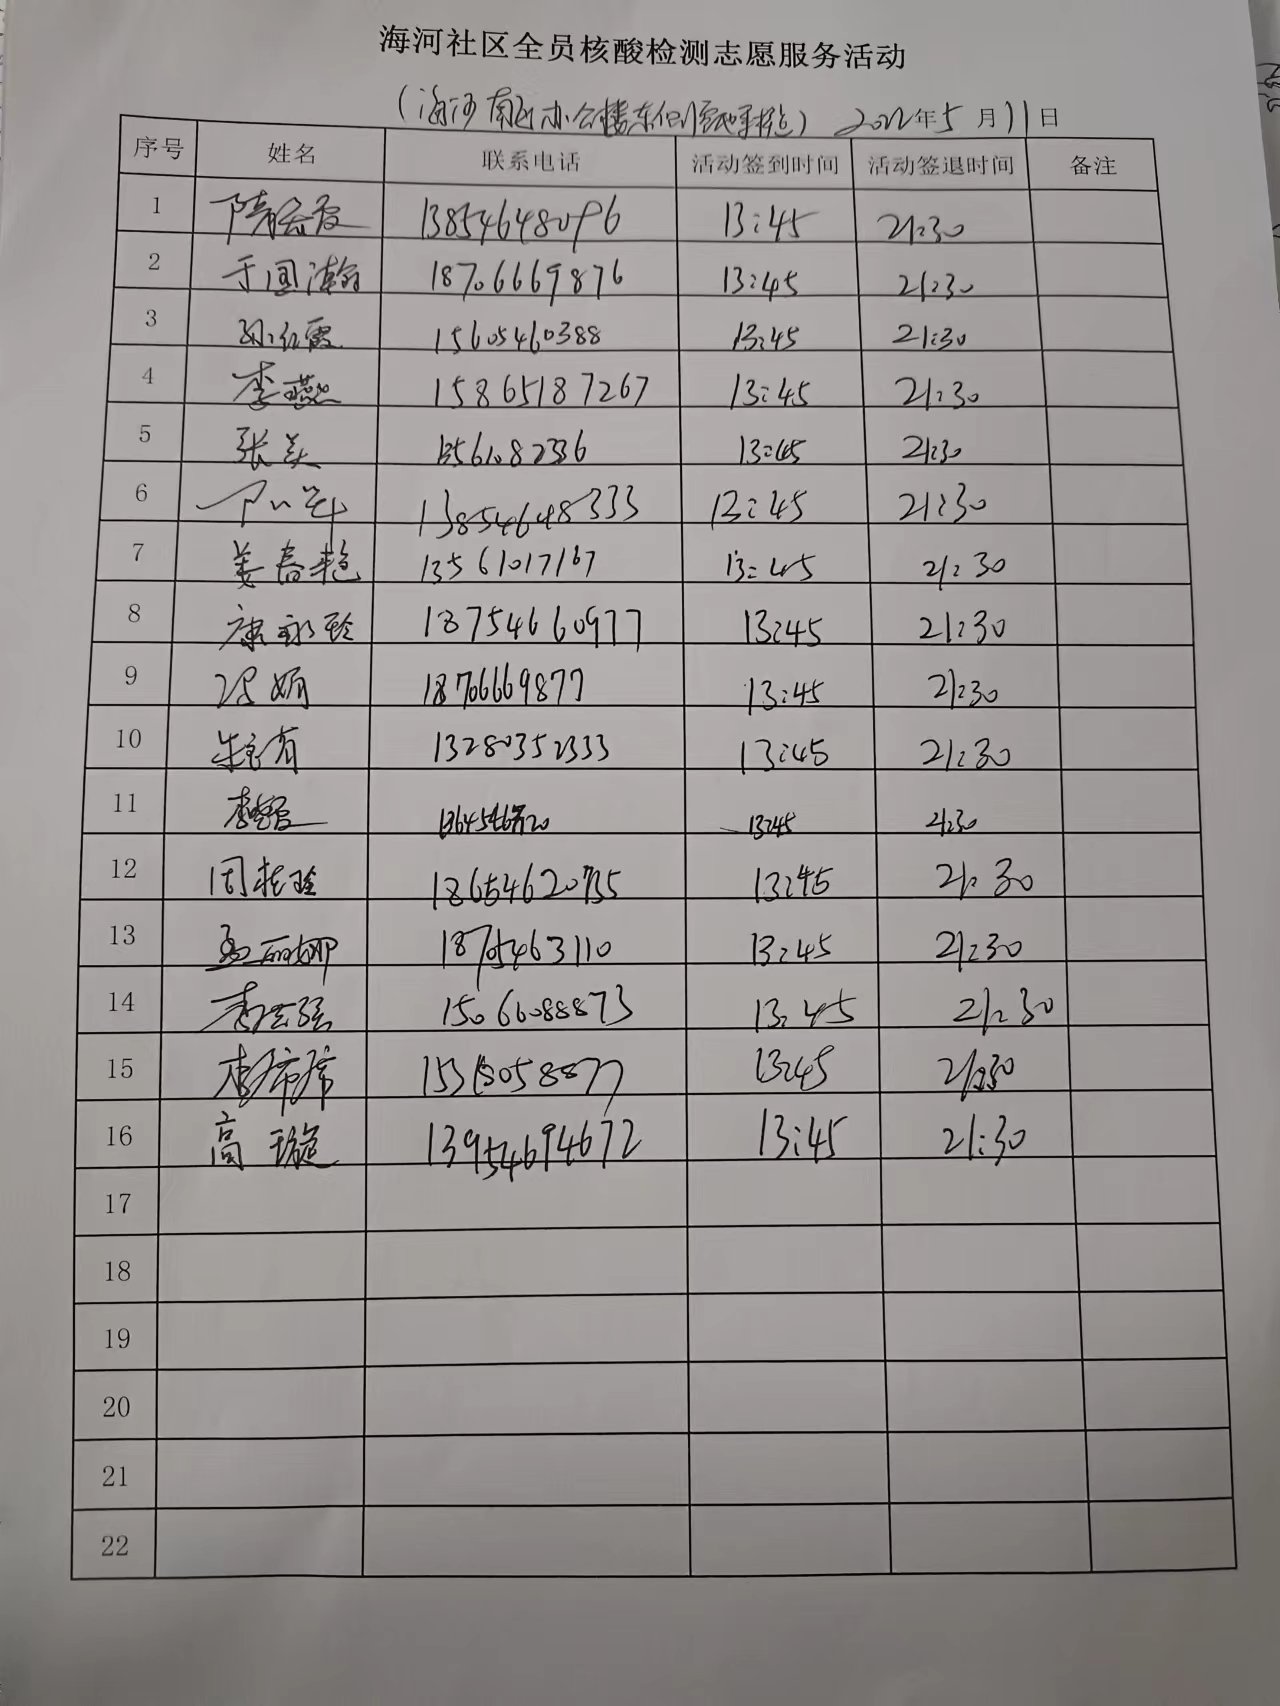 海河社区全员核酸检测志愿服务活动
(海河南区办公楼东侧空地采样点) 2022年5月11日
序号 姓名 联系电话 活动签到时间 活动签退时间 备注
1 13854648096 13:45 21:30
2 于国瀚 18706669876 13:45 21:30
3 孙红霞 15605460388 13:45 21:30
4 李燕 15865187267 13:45 21:30
5 张美 13:45 21:30
6 13854648333 13:45 21:30
7 姜春艳 13561017167 13:45 21:30
8 康永玲 18754660977 13:45 21:30
9 冯娟 18706669877 13:45 21:30
10 13280352333 13:45 21:30
11 13:45 21:30
12 周桂玲 18654620735 13:45 21:30
13 孟丽娜 18705463110 13:45 21:30
14 15066088873 13:45 21:30
15 13:45 21:30
16 高璇 13954694672 13:45 21:30
17
18
19
20
21
22